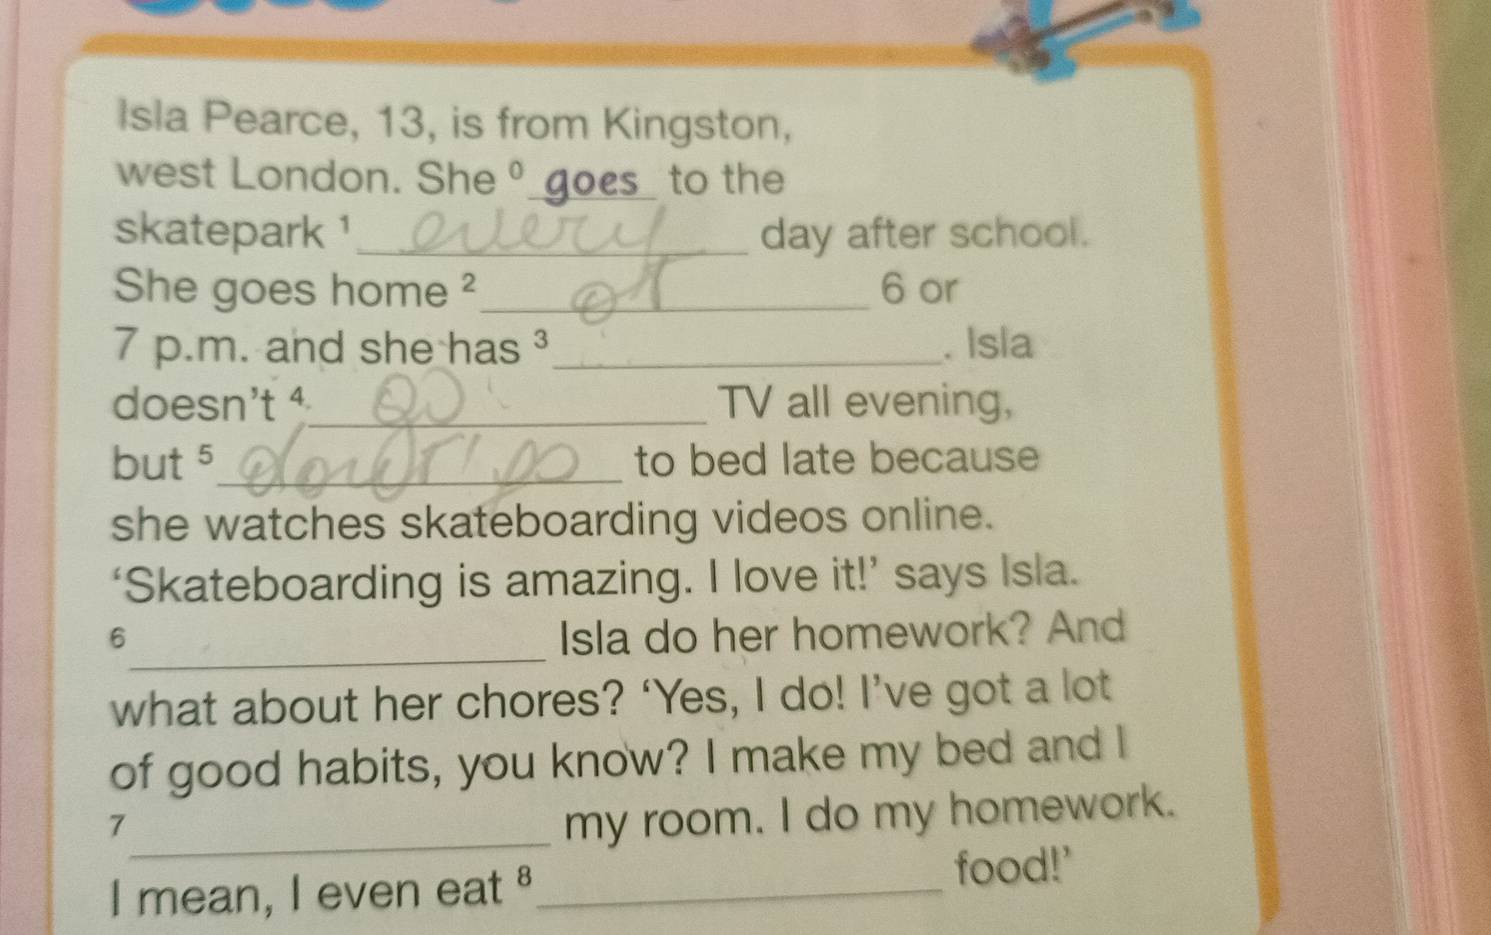 Isla Pearce, 13, is from Kingston,
west London. She ⁰ goes to the
skatepark ¹ every day after school.
She goes home ² 6 or
7 p.m. and she has ³ . Isla
doesn't ⁴ go TV all evening,
but ⁵ don't go to bed late because
she watches skateboarding videos online.
‘Skateboarding is amazing. I love it!’ says Isla.
⁶ Isla do her homework? And
what about her chores? ‘Yes, I do! I’ve got a lot
of good habits, you know? I make my bed and I
⁷ my room. I do my homework.
I mean, I even eat ⁸ food!’